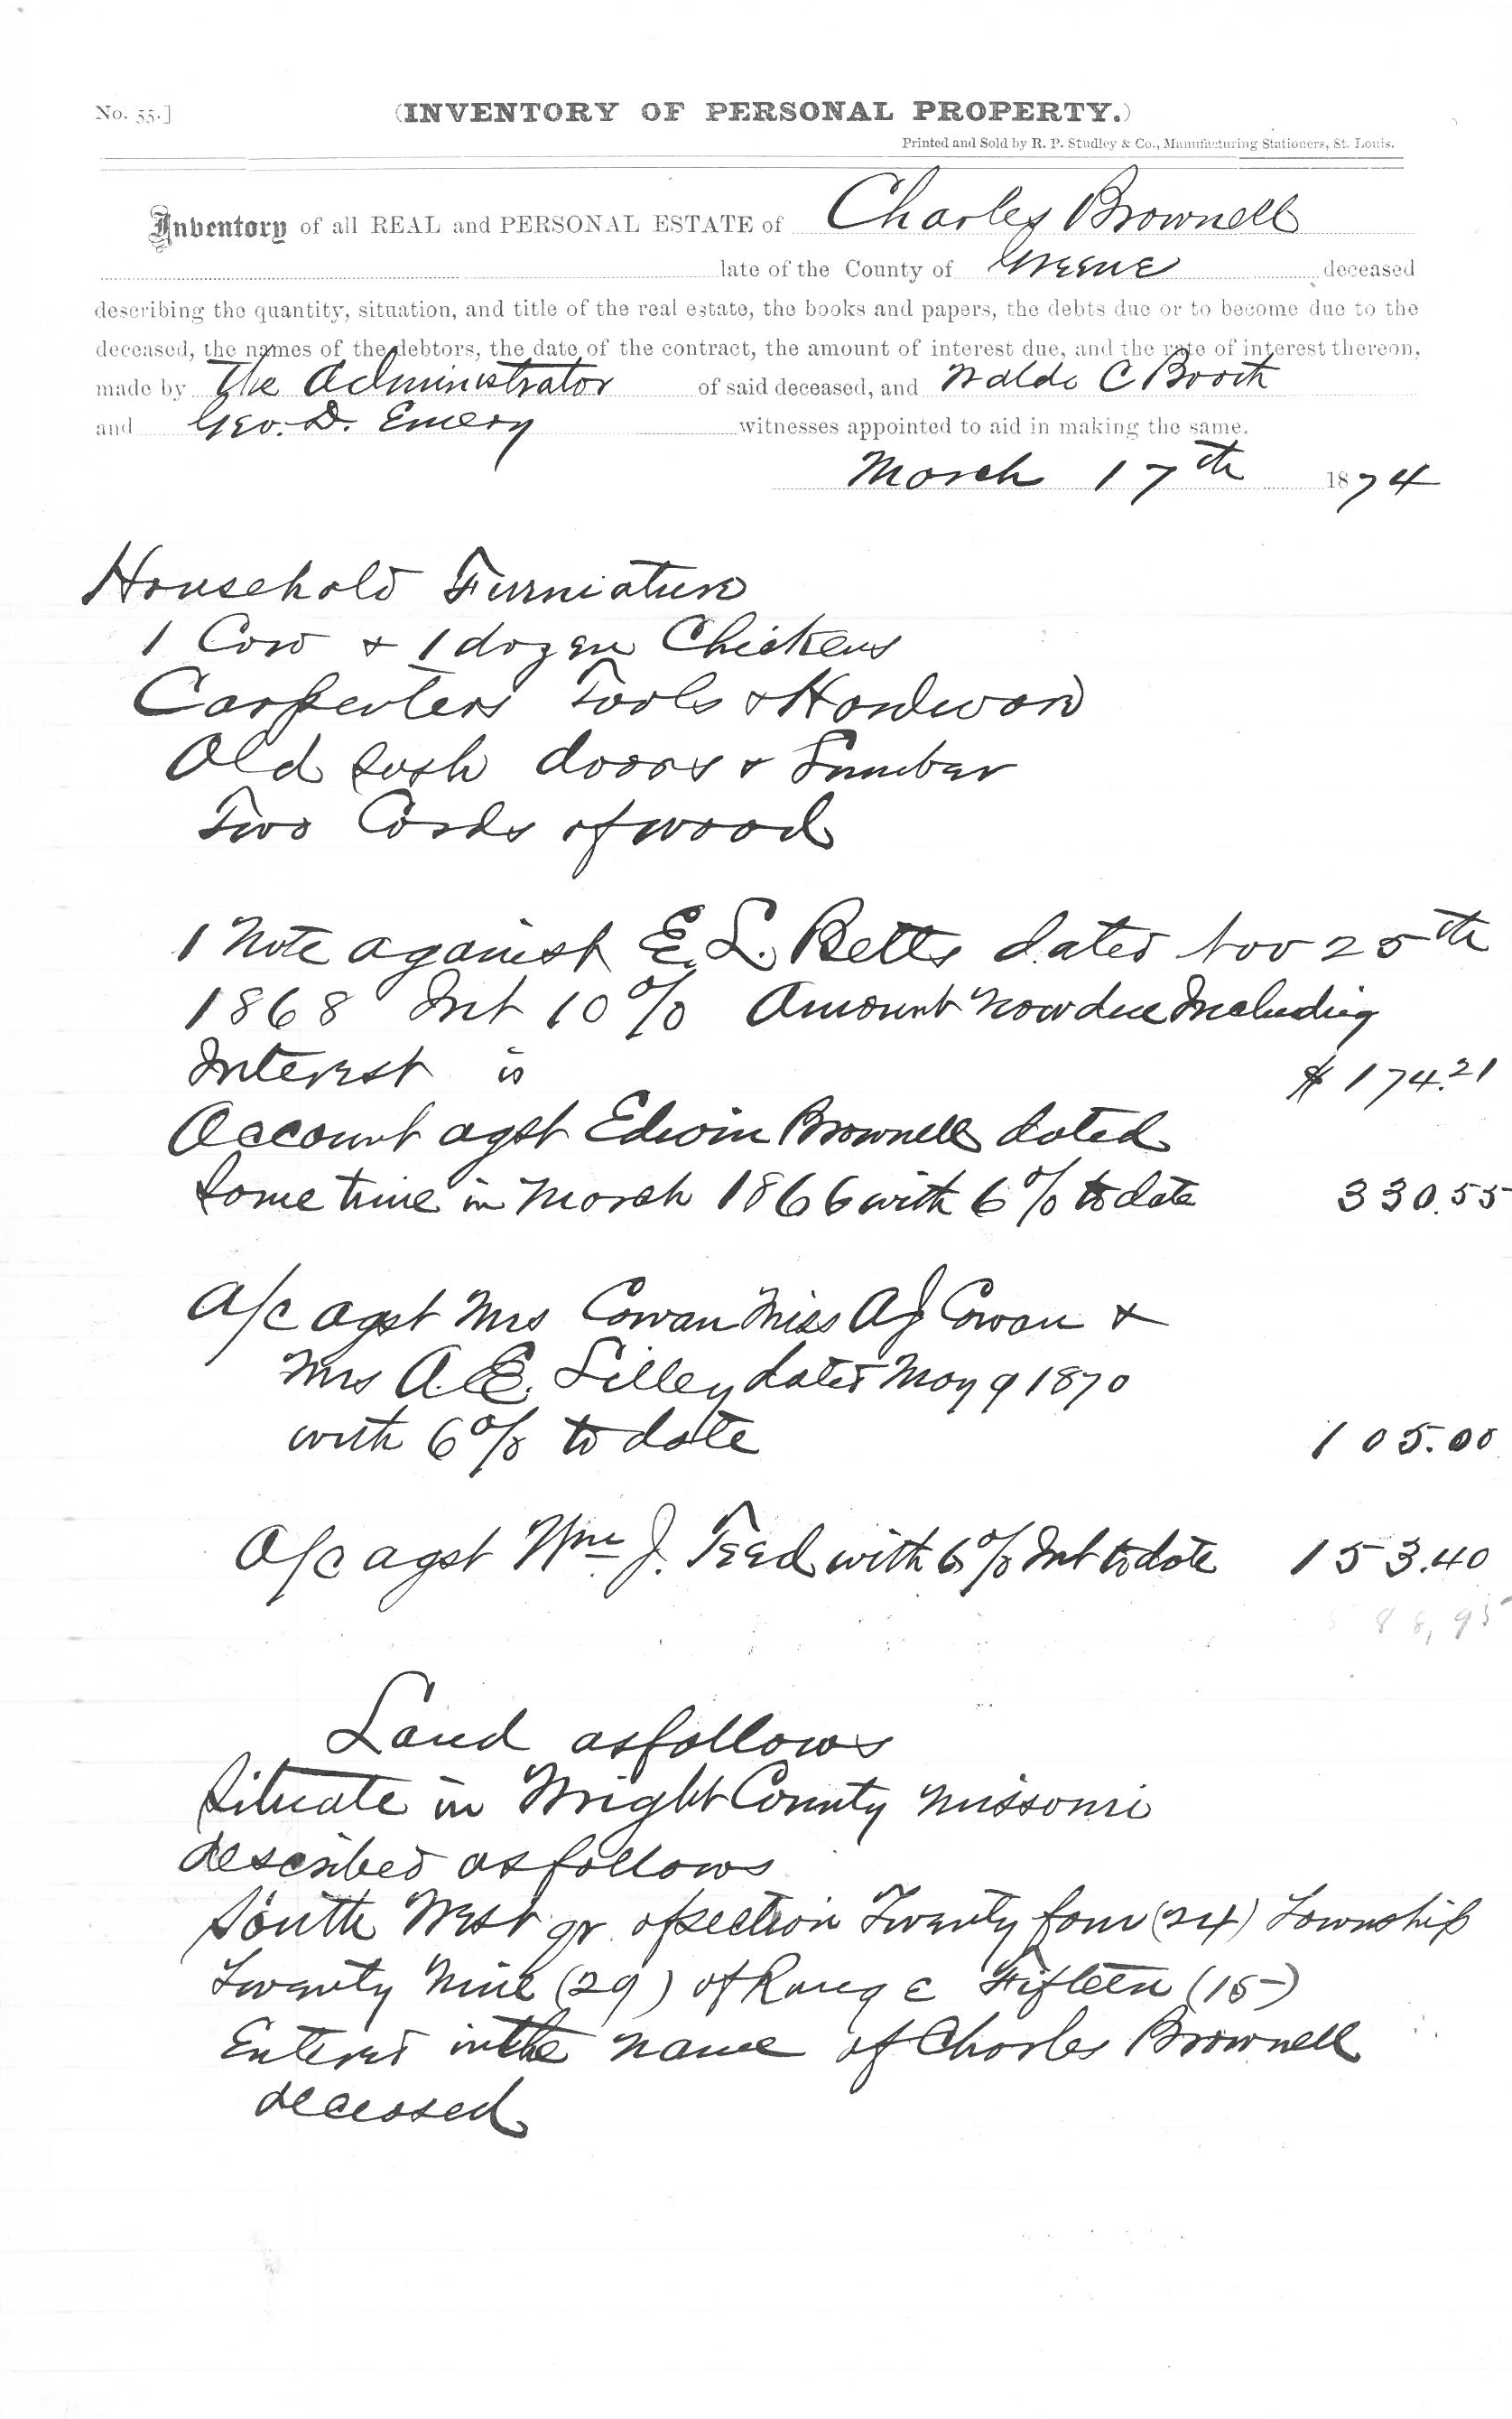 No. 55.]
(INVENTORY OF PERSONAL PROPERTY.)
Printed and Sold by R. P. Studley & Co., Manufacturing Stationers, St. Louis.
Inventory of all REAL and PERSONAL ESTATE of Charles Brownell
late of the County of Greene deceased
describing the quantity, situation, and title of the real estate, the books and papers, the debts due or to become due to the
deceased, the names of the debtors, the date of the contract, the amount of interest due, and the rate of interest thereon,
made by The Administrator of said deceased, and Waldo C Booth
and Geo. D. Emery witnesses appointed to aid in making the same.
March 17th 1874
Household Furniature
1 Cow & 1 dozen Chickens
Carpenters Tools & Hardware
Old sash doors & Lumber
Two Cords of wood
1 Note against E. L. Betts dated Nov 25th
1868 Int 10% Amount now due Including
Interest is $174.21
Account agst Edwin Brownell dated
Some time in March 1866 with 6% to date 330.55
A/c agst Mrs Cowan Miss A J Cowan &
Mrs A. E. Lilley dated May 9 1870
with 6% to date 105.00
A/c agst Wm J. Teed with 6% Int to date 153.40
588,95
Land as follows
Situate in Wright County Missouri
described as follows
South West qr. of section Twenty four (24) Township
Twenty Nine (29) of Range Fifteen (15)
Entered in the name of Charles Brownell
deceased